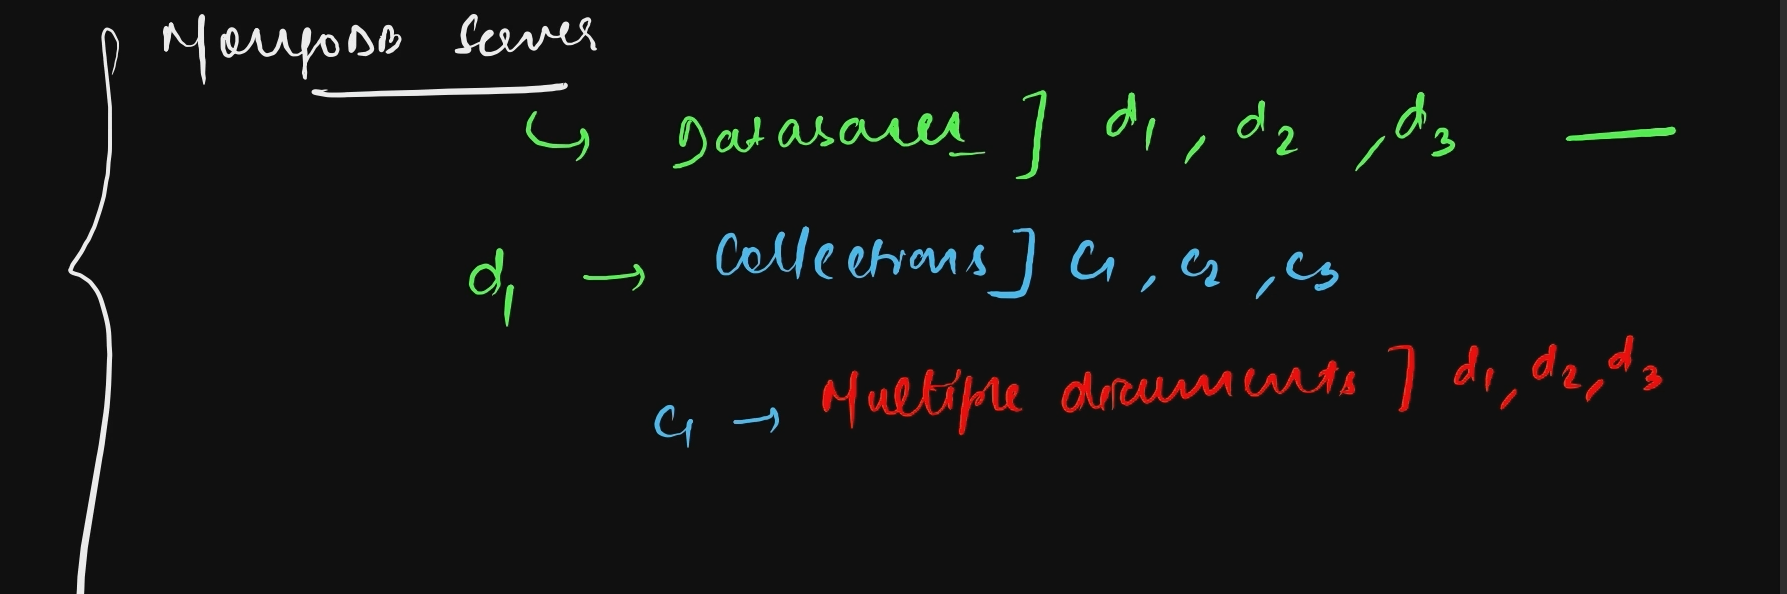 MongoDB Server
↳ Databases ] d1, d2, d3 —
d1 → Collections ] C1, C2, C3
C1 → Multiple documents ] d1, d2, d3